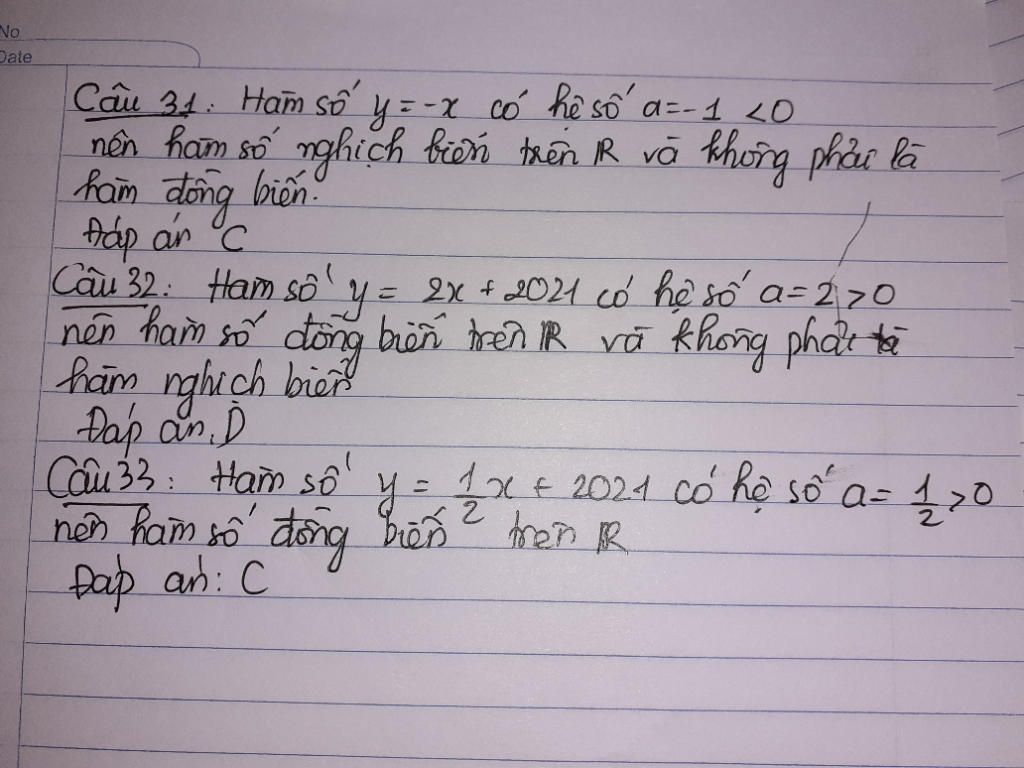 No
Date
Câu 31: Hàm số y = -x có hệ số a = -1 < 0
nên hàm số nghịch biến trên R và không phải là
hàm đồng biến.
Đáp án C
Câu 32: Hàm số y = 2x + 2021 có hệ số a = 2 > 0
nên hàm số đồng biến trên R và không phải là
hàm nghịch biến
Đáp án: D
Câu 33: Hàm số y = 1/2 x + 2021 có hệ số a = 1/2 > 0
nên hàm số đồng biến trên R
Đáp án: C